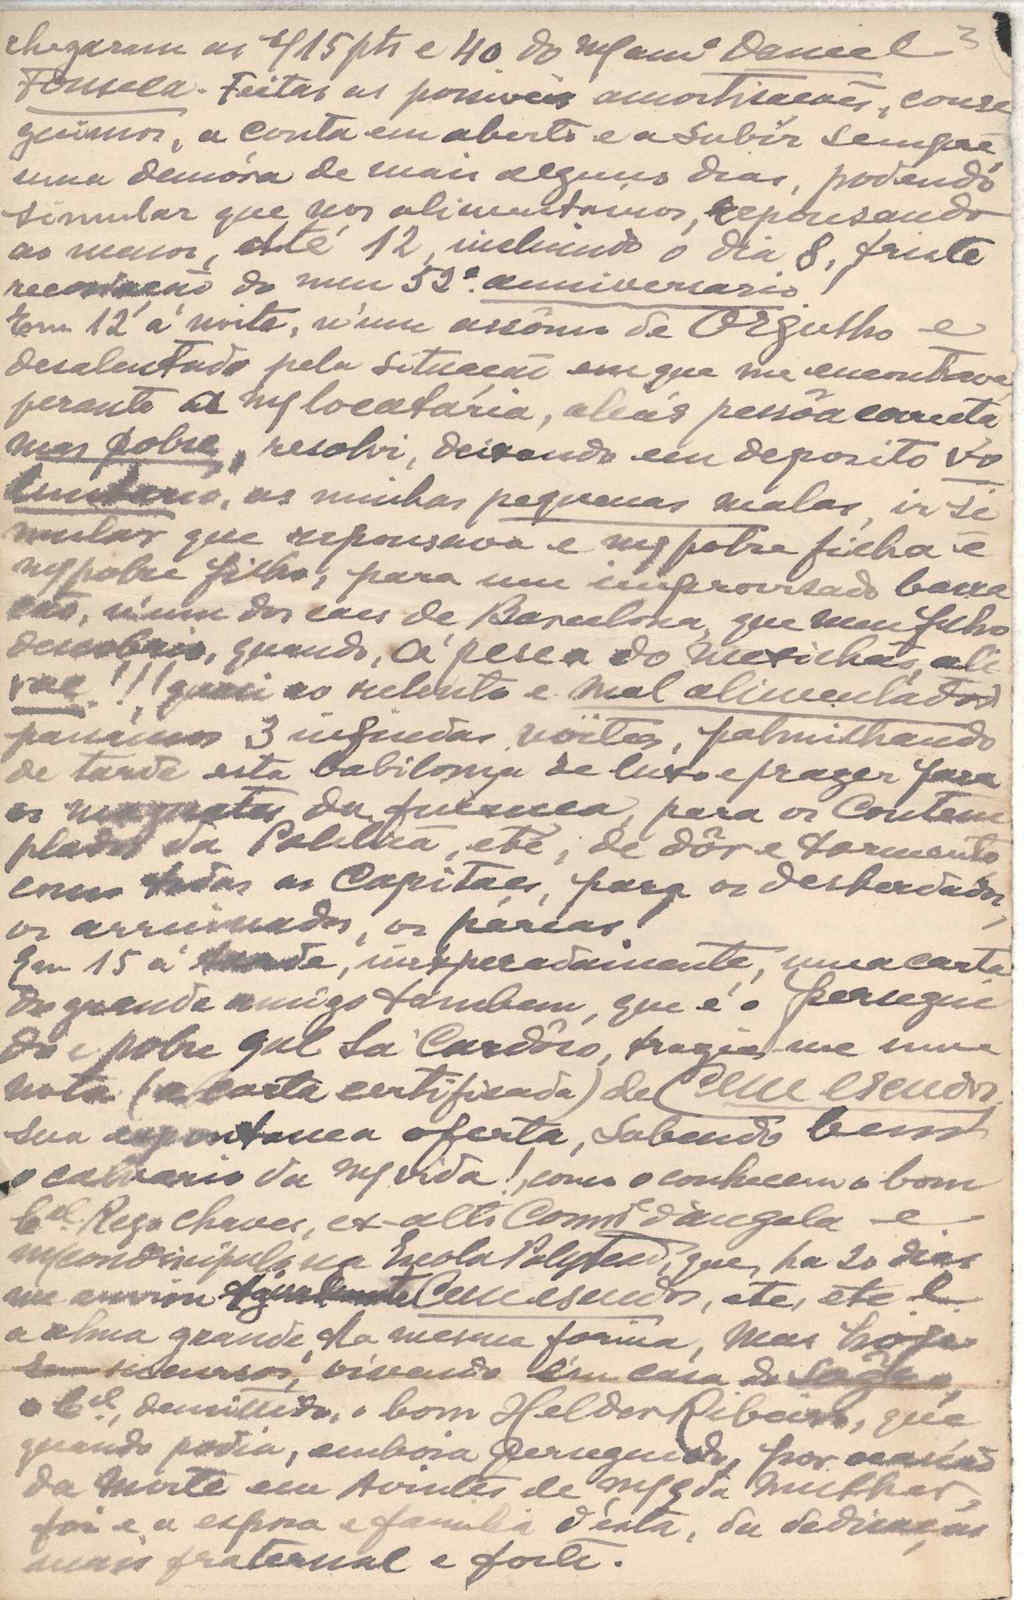 3
chegaram as 415 pts e 40 do m/ am.º Daniel
Fonseca. Feitas as possiveis amortisacões, conse
guimos, a conta em aberto e a subir sempre,
uma demóra de mais alguns dias, podendo
simular que nos alimentámos, repousando
ao menos, até 12, incluindo o dia 8, triste
recordação do meu 52º. anniversario.
Em 12 á noite, n'um assômo de Orgulho e
desalentado pela situação em que me encontrava
perante a m/ locatária, aliás pessôa correcta
mas pobre, resolvi, deixando em deposito vo
luntario, as minhas pequenas malas, ir si
mular que repousava e m/ pobre filha e
m/ pobre filho, para um improvisado barra
cão, n'um dos caes de Barcelona, que meu filho
descobrio, quando, á pesca do mexilhão, ali
vae!!! quasi ao relento e mal alimentados
passámos 3 infindas nôites, palmilhando
de tarde esta babilonia de luxo e prazer para
os magnatas da finança, para os Contem
plados da Politica, etc, de dôr e tormento
como todas as Capitaes, para os desherdados,
os arruinados, os párias.
Em 15 á tarde, inesperadamente, uma carta
do grande amigo tambem, que é o persegui
do e pobre gal Sá Cardôso, trazia-me uma
nota (a carta certificada) de Cem escudos,
sua espontanea oferta, sabendo bem
o calvario da m/ vida!, como o conhecem o bom
Cel. Rego Chaves, ex-alto Comm.º d'Angola e
m/ condiscipulo na Escola Polytecª, que, ha 20 dias
me enviou igualmente Cem escudos, etc, etc e
a alma grande, da mesma forma, mas hoje
sem recursos, vivendo em casa do sogro,
o Cel., demittido, o bom Helder Ribeiro, que
quando podia, embora perseguido, por ocasião
da morte em Avintes de m/ qda mulher,
foi e a esposa e familia d'esta, da dedicação
mais fraternal e forte.